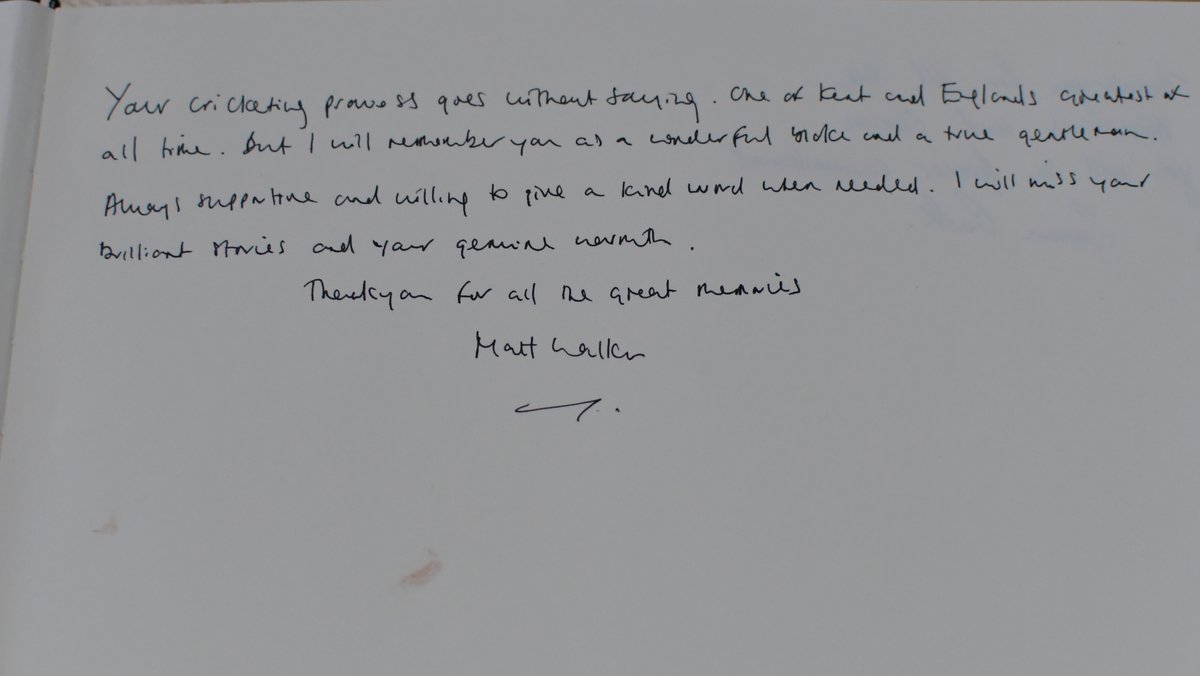 Your cricketing prowess goes without saying. One of Kent and Englands greatest of
all time. But I will remember you as a wonderful bloke and a true gentleman.
Always supportive and willing to give a kind word when needed. I will miss your
brilliant stories and your genuine warmth.
Thankyou for all the great memories
Matt Walker